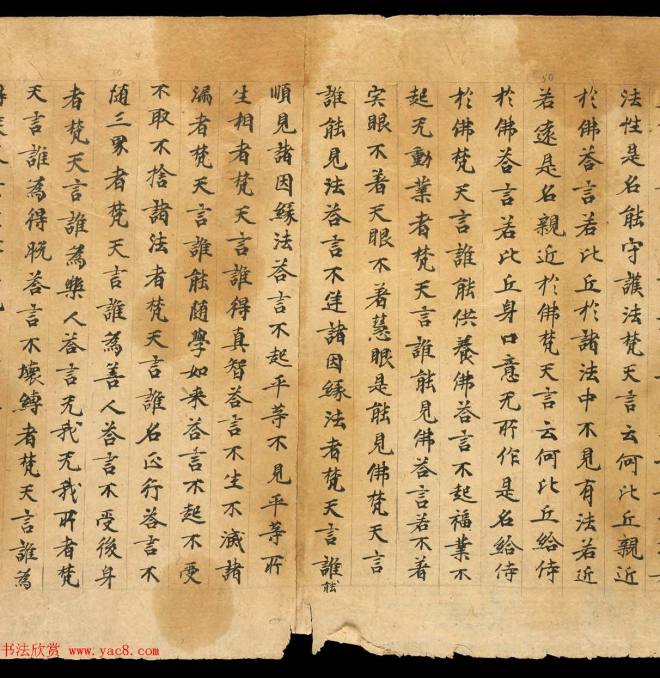 法性是名能守護法梵天言云何比丘親近
於佛荅言若比丘於諸法中不見有法若近
若遠是名親近於佛梵天言云何比丘給侍
於佛荅言若比丘身口意无所作是名給侍
於佛梵天言誰能供養佛荅言不起福業不
起无動業者梵天言誰能見佛荅言若不著
宍眼不著天眼不著慧眼是能見佛梵天言
誰能見法荅言不逆諸因緣法者梵天言誰能
順見諸因緣法荅言不起平等不見平等所
生相者梵天言誰得真智荅言不生不滅諸
漏者梵天言誰能随學如来荅言不起不受
不取不捨諸法者梵天言誰名正行荅言不
随三界者梵天言誰為善人荅言不受後身
者梵天言誰為樂人荅言无我无我所者梵
天言誰為得脱荅言不壞縛者梵天言誰為
书法欣赏 www.yac8.com